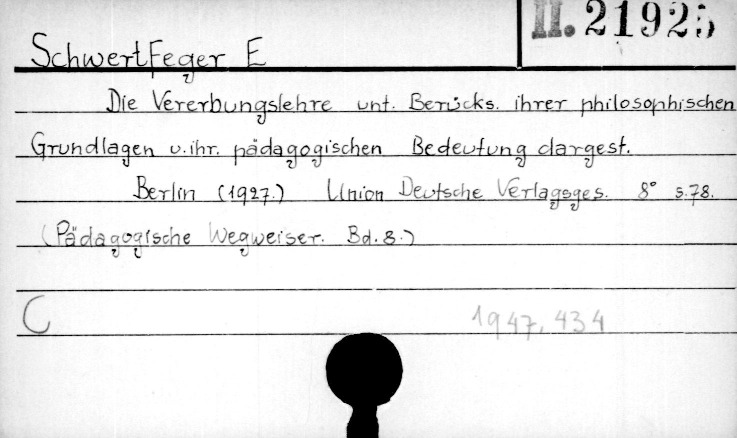 II. 21925
Schwertfeger E
Die Vererbungslehre unt. Berücks. ihrer philosophischen
Grundlagen u. ihr. pädagogischen Bedeutung dargest.
Berlin (1927.) Union Deutsche Verlagsges. 8° S.78.
(Pädagogische Wegweiser. Bd. 8.)
C 1947, 434